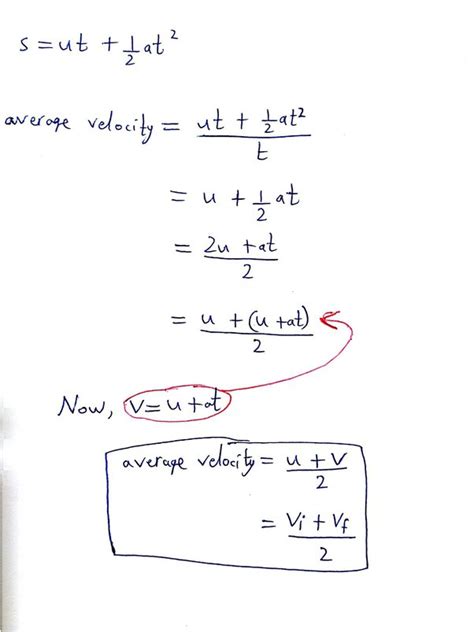 s = ut + 1/2 at²
average velocity = (ut + 1/2 at²)/t
= u + 1/2 at
= (2u + at)/2
= (u + (u + at))/2
Now, v = u + at
average velocity = (u + v)/2
= (Vi + Vf)/2